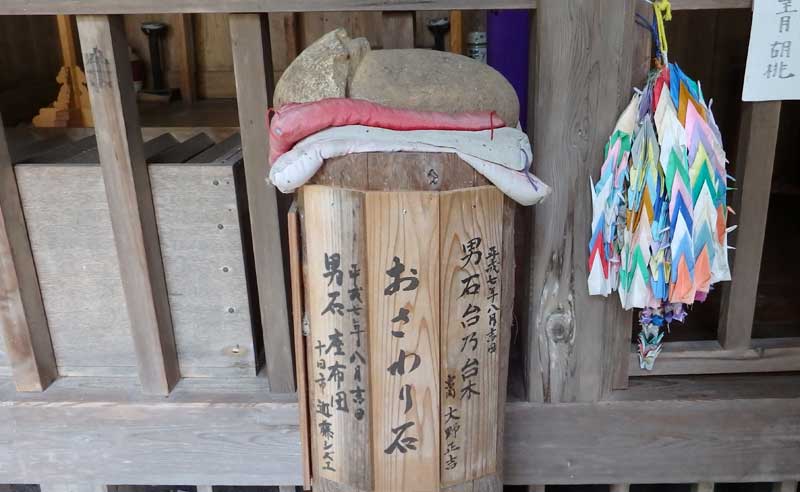 平成七年八月吉日
男石台乃台木
大野正吉
おさわり石
平成七年八月吉日
男石座布団
十日市 近藤シズエ
望月 胡桃